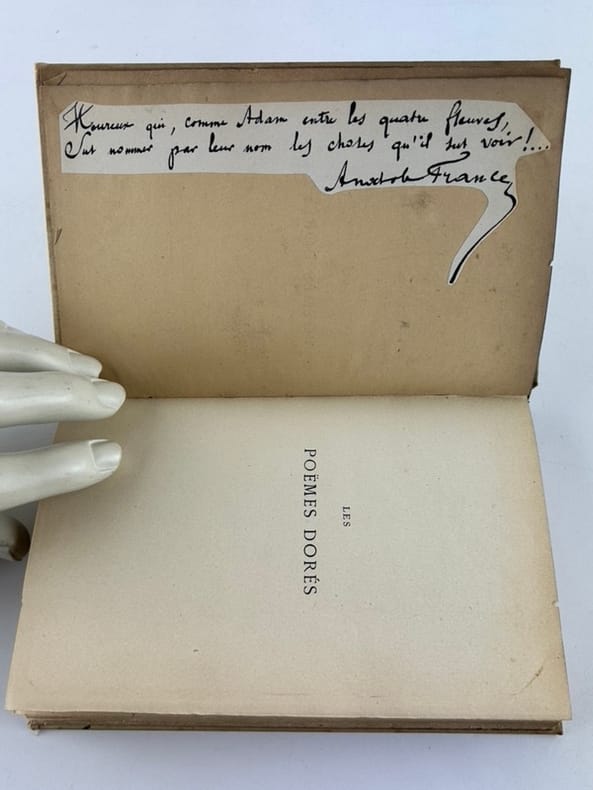 Heureux qui, comme Adam entre les quatre fleuves,
Sut nommer par leur nom les choses qu'il sut voir!...
Anatole France
LES
POËMES DORÉS